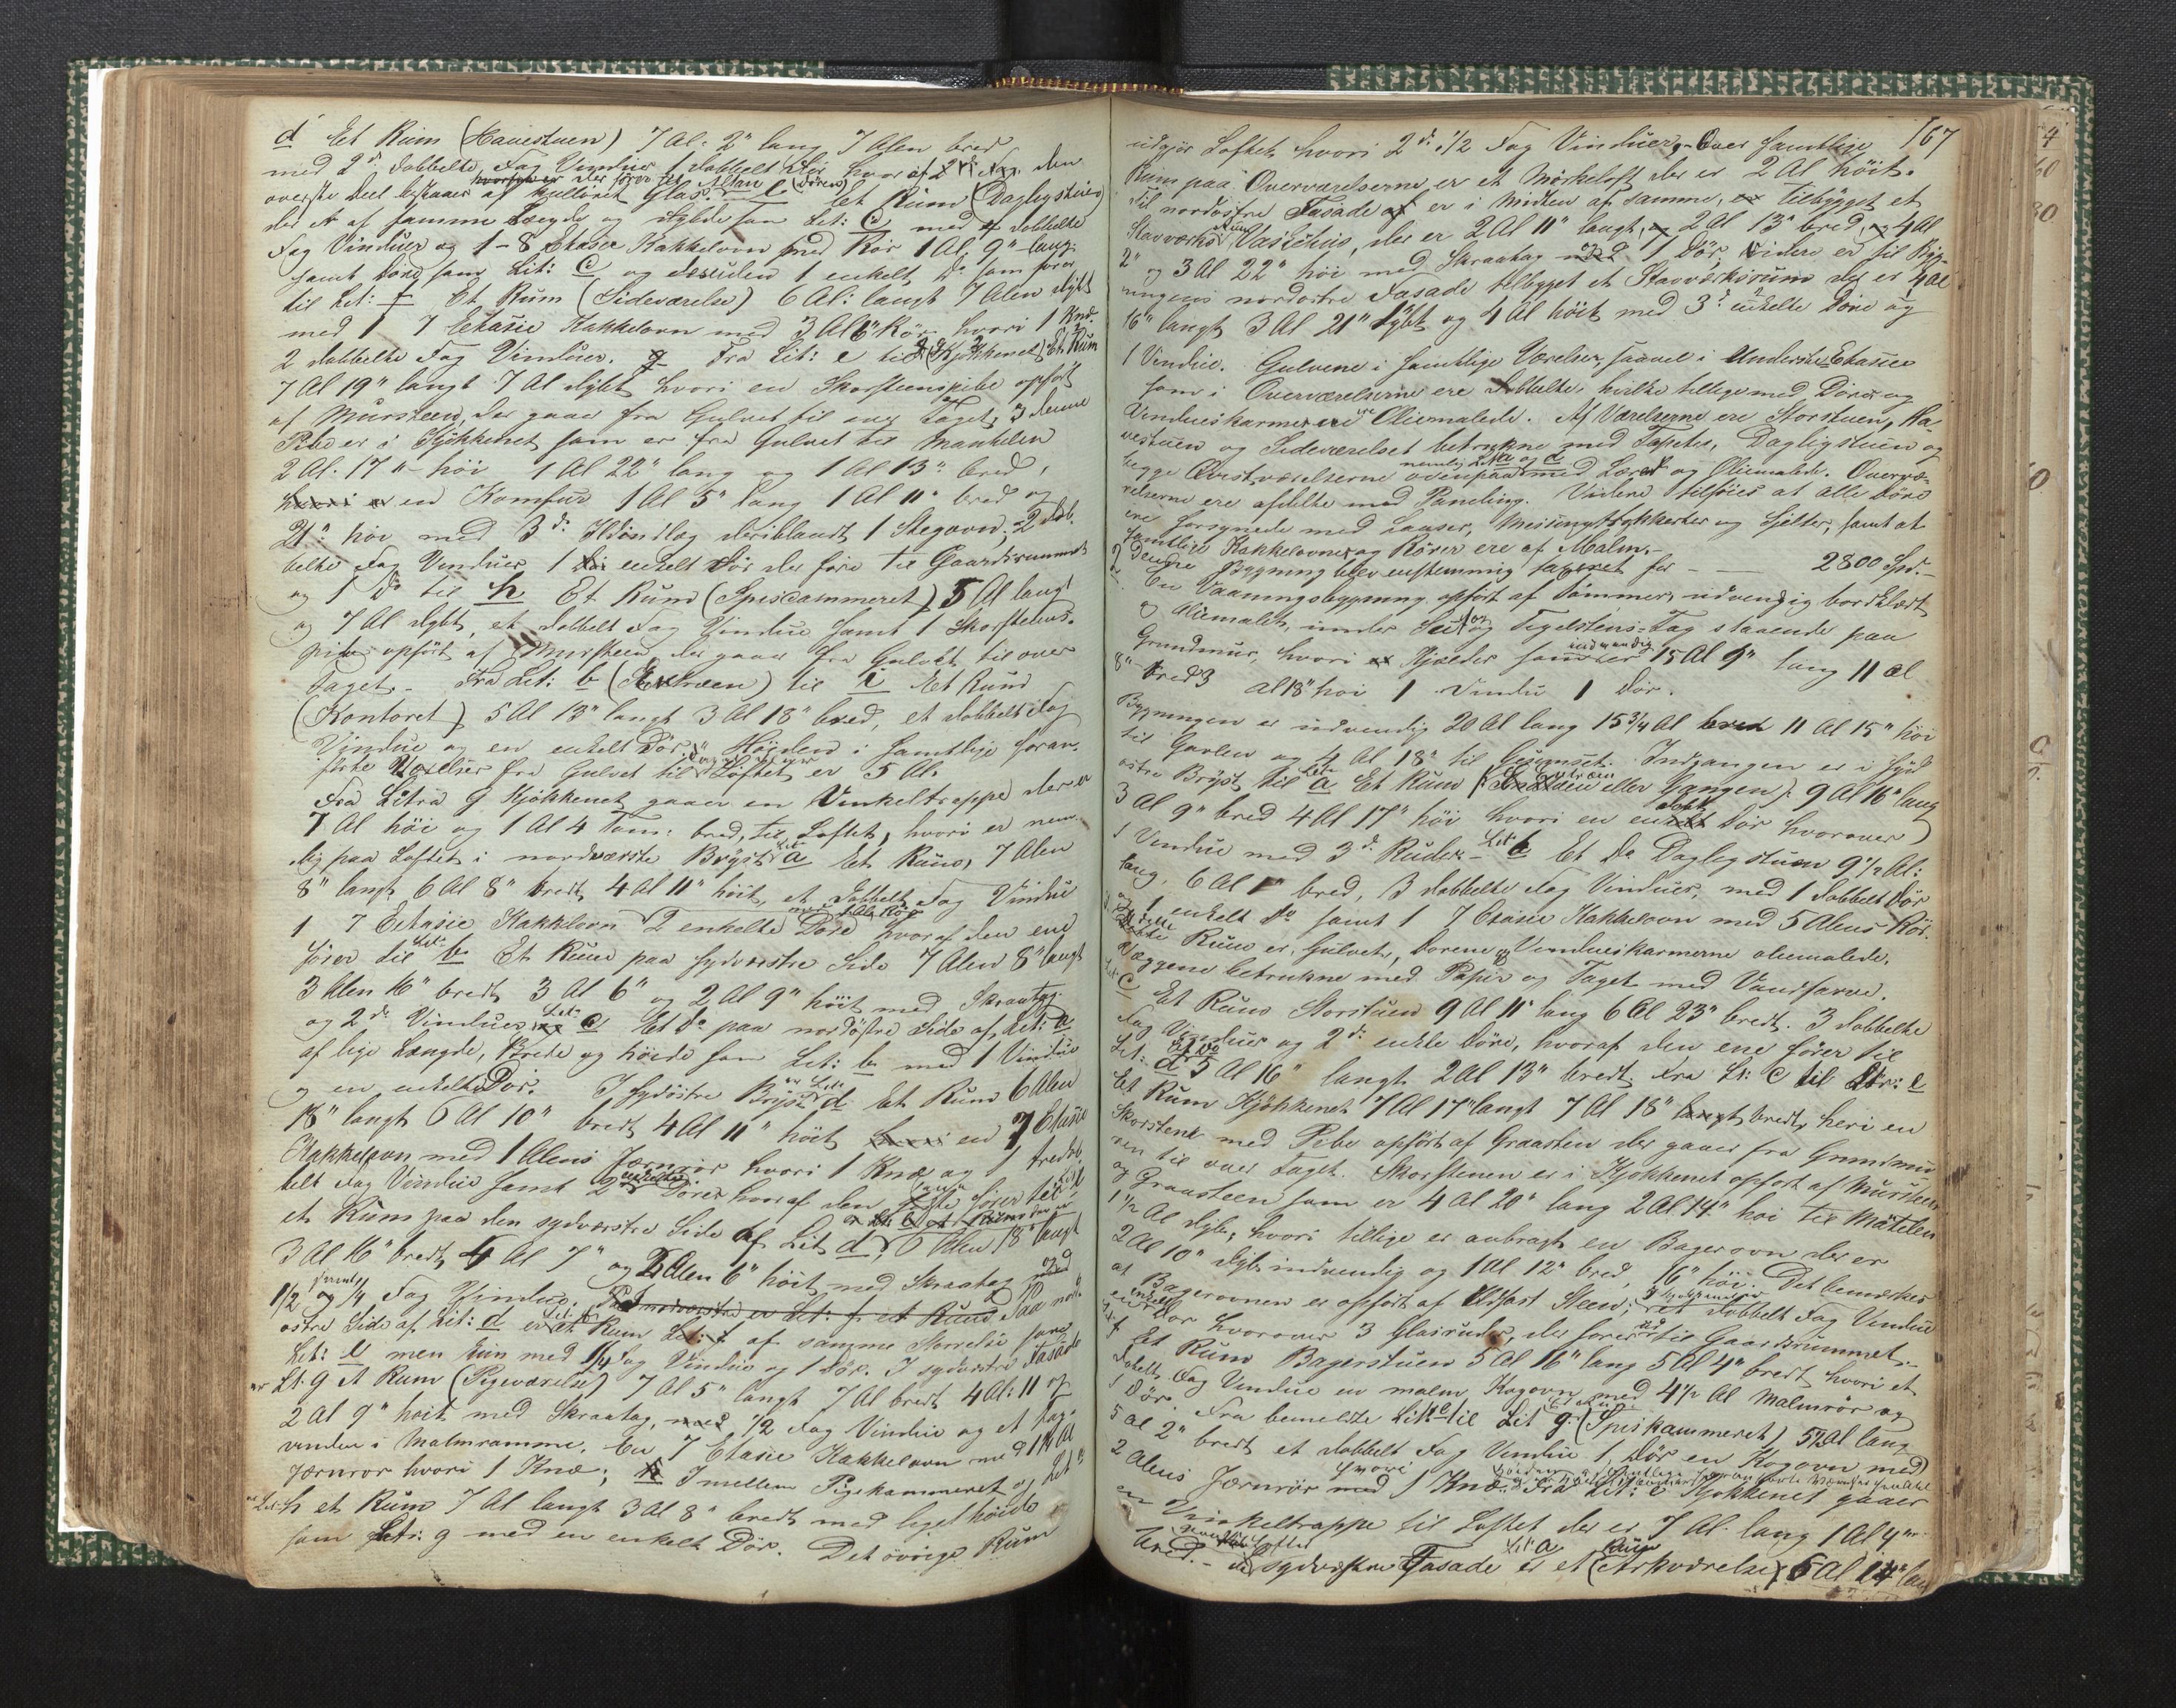 d Et Rum (Havestuen) 7 Al: 2" lang 7 Alen bred
med 2de dobbelte Fag Vinduer 1 dobbelt Dör hvoraf den
hvorfra der förer til Altan (Dören)
överste Deel bestaaer af kulliört Glas. e Et Rum (Dagligstuen)
der er af samme Længde og dybde som Let: c med 4 dobbelte
Fag Vinduer og 1 - 8 Etasies Kakkelovn med Rör 1 Al: 9" lang
samt Döre som Lit: c og desuden 1 enkelt do som förer
til Let: f Et Rum (Sideværelse) 6 Al: langt 7 Alen dybt
med 1 7 Etasie Kakkelovn med 3 Al 6" Rör hvori 1 Knæ
2 dobbelte Fag Vinduer. g Fra Lit: e til g (Kjökkenet) Et Rum
7 Al 19" langt 7 Al dybt hvori en Skorsteenspibe opfört
af Mursteen, der gaaer fra Gulvet til over Taget, I denne
Pibe er i Kjökkenet som er fra Gulvet til Mantelen
2 Al. 17" höi 1 Al 22" lang og 1 Al 13" bred,
hvori er en Komfur 1 Al 5" lang 1 Al 11" bred og
21" höi med 3de Ildindlæg deriblandt 1 Stegeovn, 2 dob-
belte Fag Vinduer 1 enkelt Dör der före til Gaardsrummet
og 1 Do til h Et Rum (Spisekammeret) 5 Al langt
og 7 Al dybt, et dobbelt Fag Vindue samt 1 Skorsteens-
pibe opfört af Mursteen der gaar fra Gulvet til over
Taget. - Fra Let: b (Extræen) til i Et Rum
(Kontoret) 5 Al 13" langt 3 Al 18" bred, et dobbelt Fag
Vindue og en enkelt Dör. Höjden i samtlige foran-
förte Værelser fra Gulvet til Loftet er 5 Al.
Fra Litra g Kjökkenet gaaer en Vinkeltrappe der er
7 Al höi og 1 Al 4 Tom: bred, til Loftet, hvori er nem-
lig paa Loftet i nordvestre Bryst Let a Et Rum, 7 Alen
8" langt 6 Al 8" bredt 4 Al 11" höit, et dobbelt Fag Vindue
med 1 Al: Rör
1 7 Eetasie Kakkelovn 2 enkelte Döre hvoraf den ene
förer til Let: b Et Rum paa sydvestre Side 7 Alen 8" langt
3 Alen 16" bredt 3 Al 6" og 2 Al 9" höit med Skraatag
og 2de Vinduer Let: c Et do paa nordöstre Side af Let: a
af lige Længde, Brede og höide som Let: b med 1 Vindue
og en enkelte Dör. I sydöstre Bryst er Let: d Et Rum 6 Alen
18" langt 6 Al 10" bredt 4 Al 11" höit hvori en 7 Etasie
Kakkelovn med 1 Alens Jernrör hvori 1 Knæ og 1 tredob-
belt Fag Vindue samt 2 enkelte Dörer hvoraf den förer til
et Rum paa den sydvestre Side af Let d, 6 Alen 18" langt
3 Al 16" bredt 4 Al 7" og 2 Alen 6" höit med Skraatag med
1/2 og 1/4 Fag Vindue. Paa nordvestre er Let: f et Rum Paa nord-
östre Side af Lit: d er et Rum Let: f af samme Störrelse som
Let: e men kun med 1/4 Fag Vindue og 1 Dör. I sydvestre Fasade
er Lt. g et Rum (Pigeværelse) 7 Al 5" langt 7 Al bredt 4 Al: 11 og
2 Al 9" höit med Skraatag, med 1/2 Fag Vindue og et Tag-
vindue i Malmramme. En 7 Etasie Kakkelovn med 1 1/4 Al
Jernrör hvori 1 Knæ; h Imellem Pigekammeret og Let a
er Let: h et Rum 7 Al langt 3 Al 8" bredt med liget höide
som Let: g med en enkelt Dör. Det övrige Rum
167
udgjör Loftet hvori 2de 1/2 Fag Vinduer. - Over samtlige
Rum paa Overværelserne er et Mörkeloft der er 2 Al höit.
Til nordöstre Fasade er i Midten af samme, er tilbygget et
Stavværks Vaschhus, der er 2 Al 11" langt, 2 Al 13" bred, 4 Al
2" og 3 Al 22" höi med Skraatag og 1 Dör, Videre er til Byg-
ningens nordöstre Fasade tilbygget et Stavværksrum der er 4 Al
16" langt 3 Al 21" dybt og 4 Al höit med 3de enkelte Döre og
1 Vindue. Gulvene i samtlige Værelser, saavel i Understeetasie
som i Overværelserne ere dobbelte, hvilke tillige med Döre og
Vindueskarmer ere Oliemalede. Af Værelserne ere Storstuen, Ha-
vestuen og Sideværelset betrukne med Tapeter, Dagligstuen og
nemlig Lit a og d
begge Qvistværelserne ovenpaa med Lærred og Oliemalede. Overvæ-
relserne ere afdeelte med Paneling. Videre tilföies at alle Döre
ere forsynede med Laaser, Messingtrykkerter og Skilter, samt at
samtlige Kakkelovne og Rörer ere af Malm. -
Denne Bygning blev eenstemmig taxeret for - — 2800 Spd. -
2 En Vaaningsbygning opfört af Tömmer, udvendig bordklædt
og Oliemalet, under Sutag og Tegelsteens-Tag staaende paa
Grundmur, hvori er Kjælder som er indvendig 15 Al 9" lang 11 Al
8" bred 3 Al 18" höi 1 Vindu 1 Dör.
Bygningen er udvendig 20 Al lang 15 3/4 Al bred 11 Al 15" höi
til Gavlen og 4 Al 18" til Gesimset. Indgangen er i Syd-
östre Bryst til Let a Et Rum (Extræen eller Gangen) 9 Al 16" lang
3 Al 9" bred 4 Al 17" höi hvori en dobb. Dör hvorover
1 Vindue med 3de Ruder - Let b Et Do Dagligstuen 9 1/2 Al:
lang, 6 Al 1" bred, 3 dobbelte Fag Vinduer, med 1 dobbelt Dör
og 1 enkelt do samt 1 7 Etasies Kakkelovn med 5 Alens Rör.
I dette Rum er Gulvet, Dörene og Vindueskarmerne oliemalede.
Væggene betrukne med Papir og Taget med Vandfarve.
Let: c Et Rum Storstuen 9 Al 11" lang 6 Al 23" bredt. 3 dobbelte
Fag Vinduer og 2de enkle Döre, hvoraf den ene förer til
Let: d Et Do 5 Al 16" langt 2 Al 13" bredt. Fra Lt: c til Litr: e
Et Rum Kjökkenet 7 Al 17" langt 7 Al 18" bredt, heri en
Skorsteen med Pibe opfört af Graasten der gaaer fra Grundmu-
ren til over Taget. Skorstenen er i Kjökkenet opfört af Mursteen
og Graasteen som er 4 Al 20" lang 2 Al 14" höi til Mantelen
1 1/2 Al dyb, hvori tillige er anbragt en Bagerovn der er
2 Al 10" dyb indvendig og 1 Al 12" bred, 16" höi. Det bemærkes
at Bagerovnen er opfört af Ildfast Steen; I Kjökkenet et dobbelt Fag Vindue
en enkelt Dör hvorover 3 Glasruder, der förer ud til Gaardsrummet. -
Let: f Et Rum Bagerstuen 5 Al 16" lang 5 Al 4" bredt hvori et
dobelt Fag Vindue en malm Kogovn med 4 1/2 Al Malmrör og
1 Dör. Fra bemeldte Lit e til Lit g. Et Rum (Spiskammeret) 5 1/2 Al lang
5 Al 2" bredt et dobbelt Fag Vindue 1 Dör en Kogovn med
2 Alens Jernrör hvori 1 Knæ. Fra Let: e Kjökkenet gaaer
en Vinkeltrappe til Loftet der er 7 Al. lang 1 Al 4"
bred. - Paa Loftet i sydvestre Fasade Lit a er et Rum (Arkværelse) 5 Al 14" lang